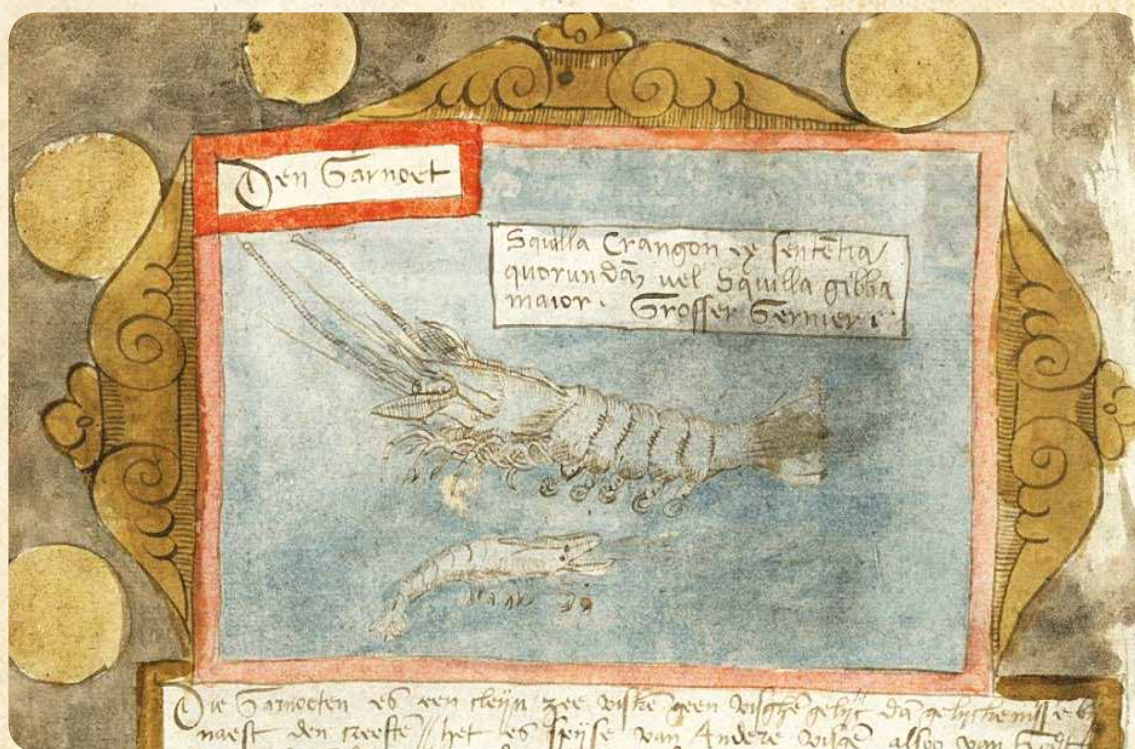 Den Garnoet
Squilla Crangon ex sentētia
quorundā vel Squilla gibba
maior. Grosser Gernier
Die Garnoeten es een cleijn zee viske geen visschē gelijc dā gelijckenisse
naest den creeften // het es spijse van Andere visschē alsoe van